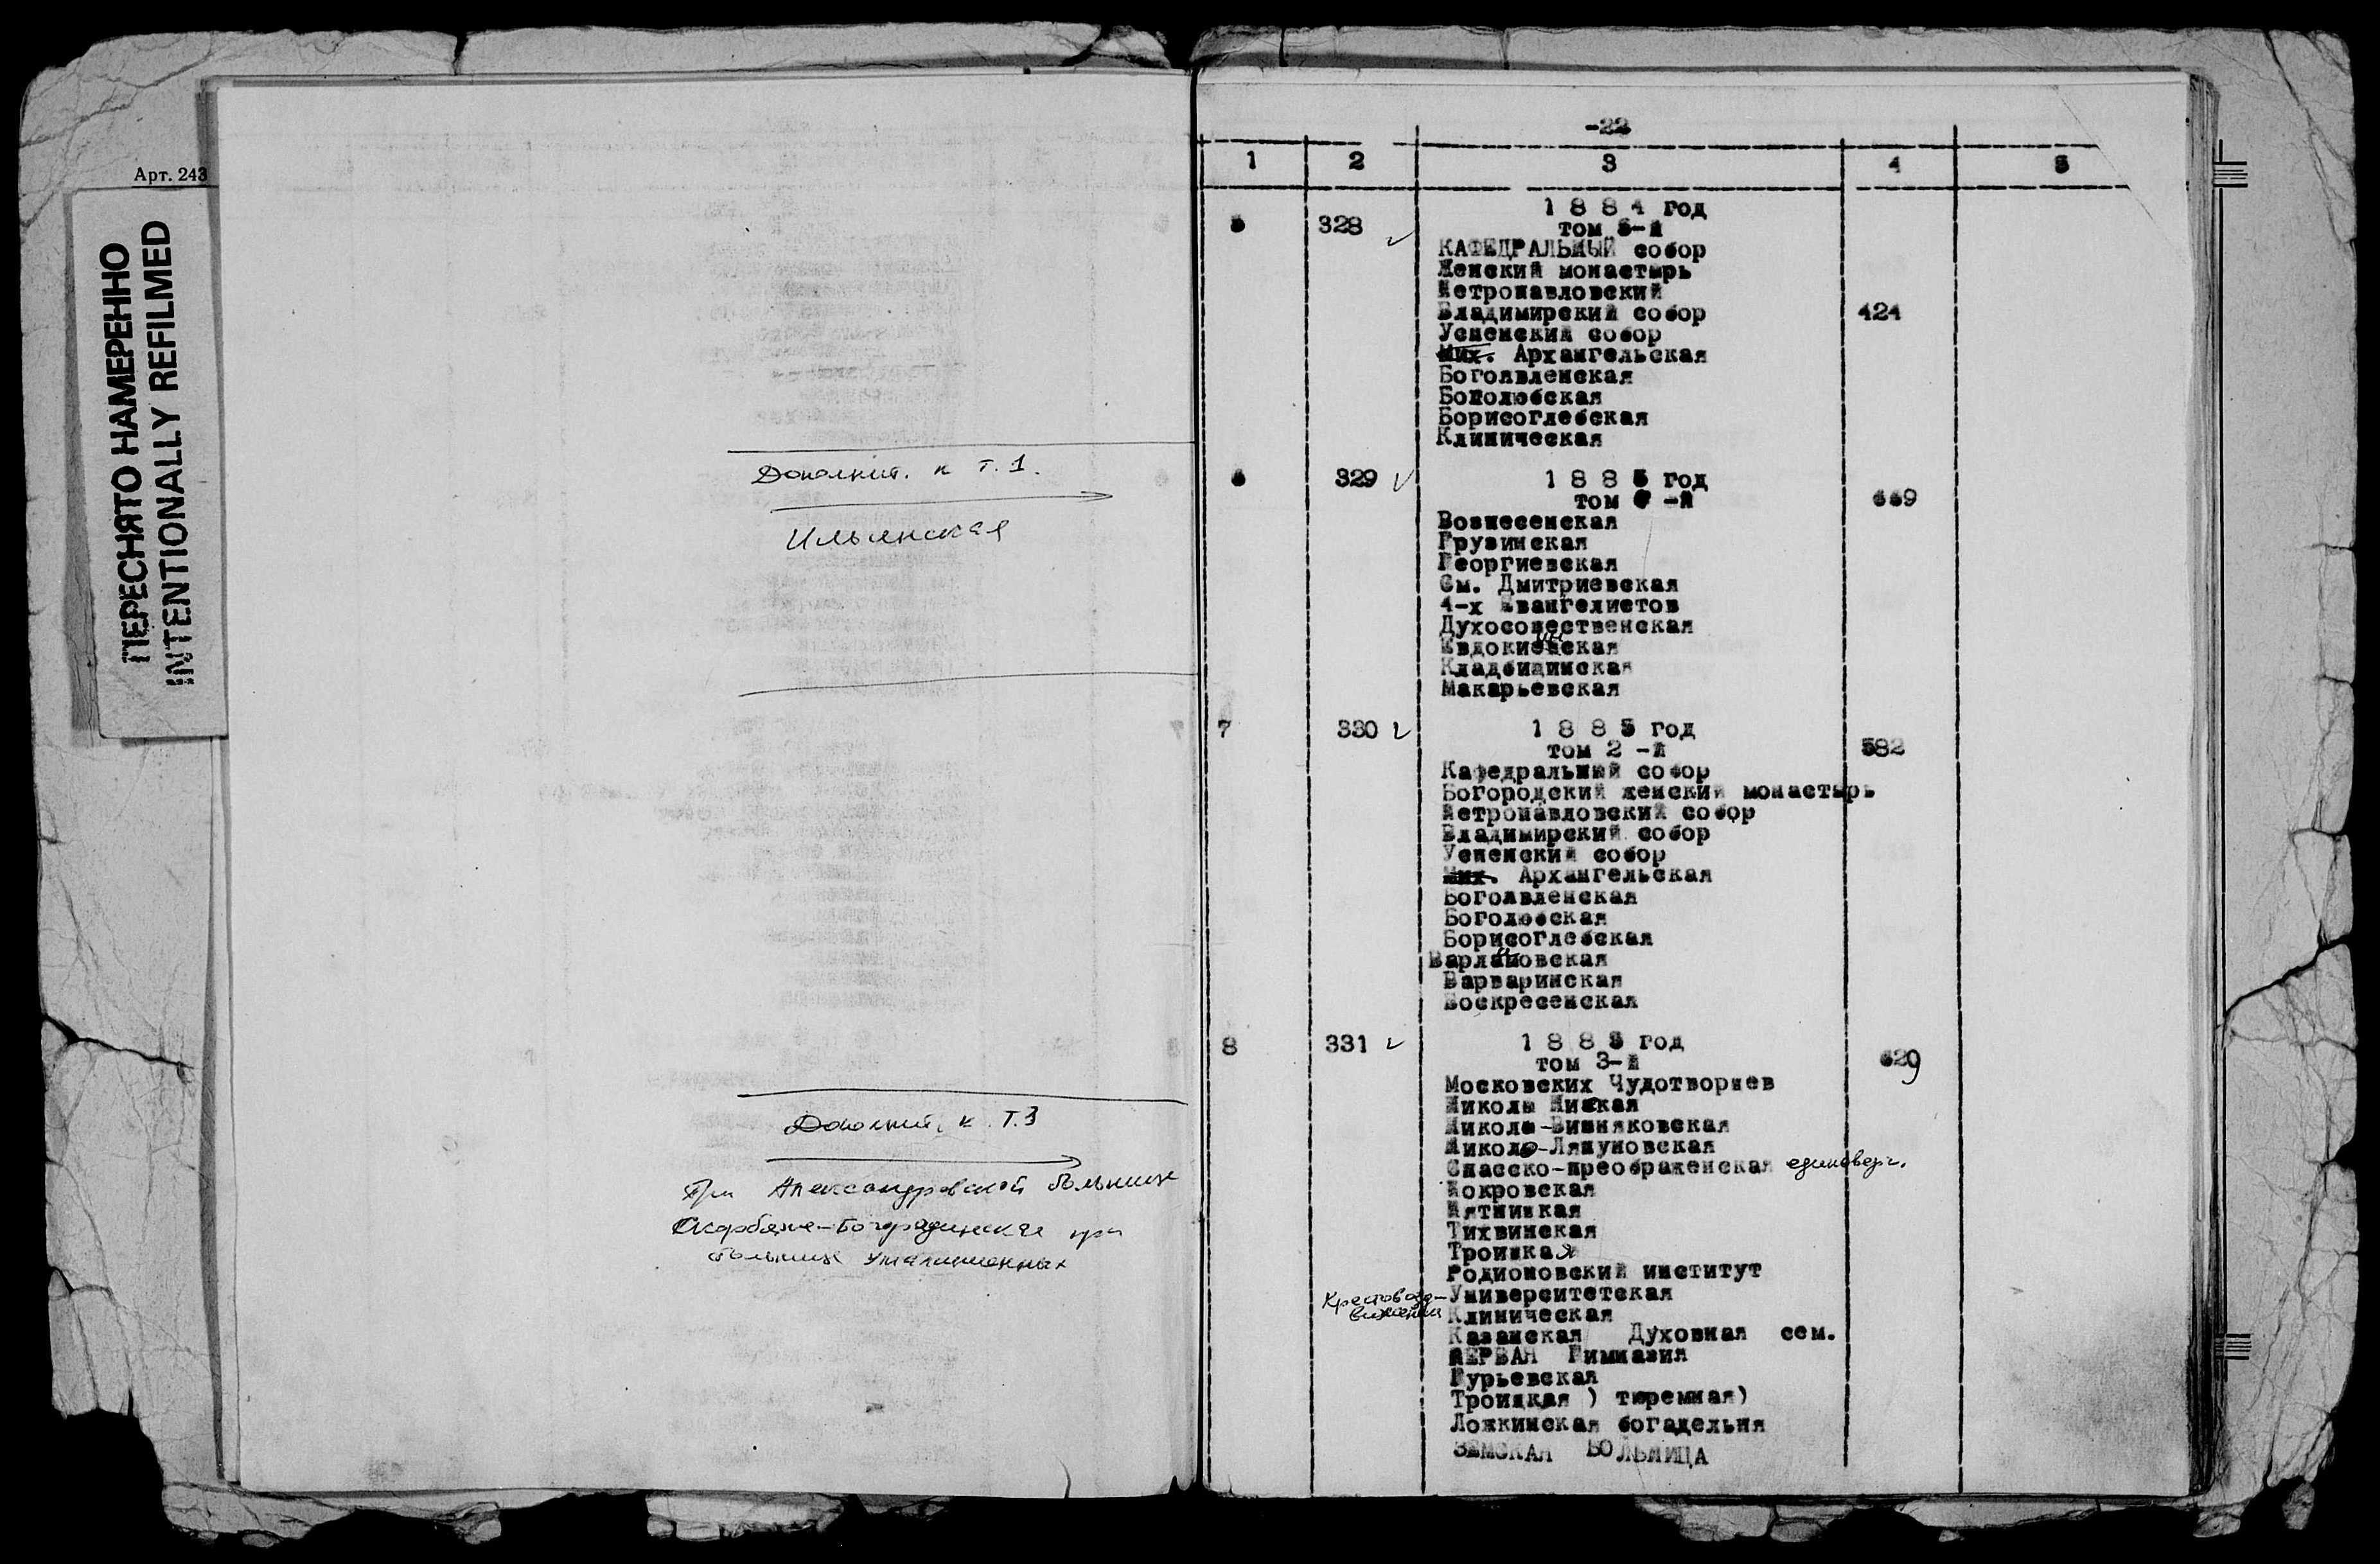 Арт. 243
ПЕРЕСНЯТО НАМЕРЕННО
INTENTIONALLY REFILMED
Дополнит. к т. 1.
Ильинская
Дополнит. к Т.3
При Александровской больнице
Скорбяще-Богородицкая при
больнице умалишенных
-22
1 2 3 4 5
5 328 1 8 8 4 год
том 5-й
КАФЕДРАЛЬНЫЙ собор
Женский монастырь
Петропавловский
Владимирский собор 424
Успенский собор
Мих. Архангельская
Богоявленская
Боголюбская
Борисоглебская
Клиническая
6 329 1 8 8 5 год
том -й 669
Вознесенская
Грузинская
Георгиевская
См. Дмитриевская
4-х Евангелистов
Духосошественская
Евдокиинская
Кладбищинская
Макарьевская
7 330 1 8 8 5 год
том 2 -й 582
Кафедральный собор
Богородский женский монастырь
Петропавловский собор
Владимирский собор
Успенский собор
Мих. Архангельская
Богоявленская
Боголюбская
Борисоглебская
Варламовская
Варваринская
Воскресенская
8 331 1 8 8 5 год
том 3-й 629
Московских Чудотворцев
Николы Низкая
Николо-Вишняковская
Николо-Ляпуновская
Спасско-преображенская единоверч.
Покровская
Пятницкая
Тихвинская
Троицкая
Родионовский институт
Крестовоздвижения Университетская
Клиническая
Казанская Духовная сем.
ПЕРВАЯ Гимназия
Гурьевская
Троицкая ) тюремная)
Ложкинская богадельня
ЗЕМСКАЯ БОЛЬНИЦА